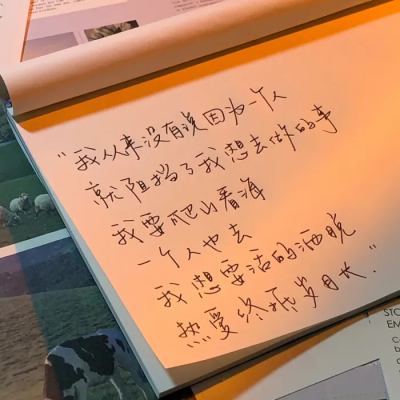 "我从来没有说因为一个人
就阻挡了我想去做的事
我要爬山看海
一个人也去
我想要活的洒脱
热爱终抵岁月长."
STO
EM